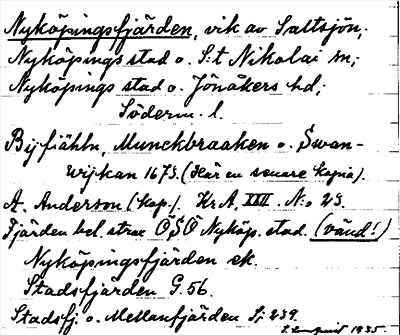 Nyköpingsfjärden, vik av Saltsjön,
Nyköpings stad o. S:t Nikolai sn;
Nyköpings stad o. Jönåkers hd;
Söderm. l.
Byfiähln, Munckbraaken o. Swan-
wijkan 1673. (Här en senare kopia).
A. Anderson (kop.). Kr.A. XXII. N:o 23.
Fjärden bel. strax ÖSÖ Nyköp. stad. (vänd!)
Nyköpingsfjärden ek.
Stadsfjärden G. 56.
Stadsfj. o. Mellanfjärden Sj: 239.
1935.